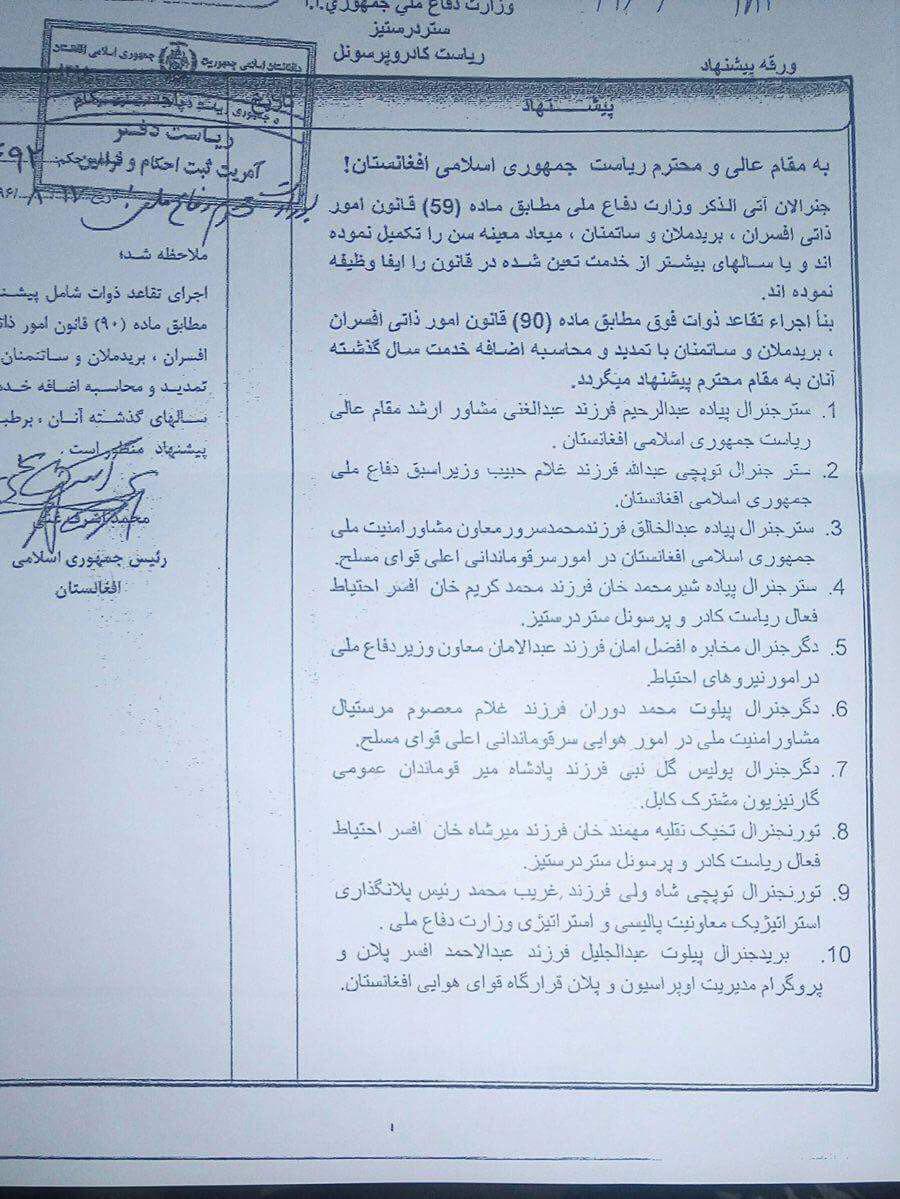 وزارت دفاع ملی جمهوری.ا.ا
ستردرستیز
ریاست کادروپرسونل
ورقه پیشنهاد
پیشنهاد
تاریخ
ریاست دفتر
آمریت ثبت احکام و فرامین
به مقام عالی و محترم ریاست جمهوری اسلامی افغانستان!
جنرالان آتی الذکر وزارت دفاع ملی مطابق ماده (59) قانون امور
ذاتی افسران ، بریدملان و ساتمنان ، میعاد معینه سن را تکمیل نموده
اند و یا سالهای بیشتر از خدمت تعین شده در قانون را ایفا وظیفه
نموده اند.
بنأ اجراء تقاعد ذوات فوق مطابق ماده (90) قانون امور ذاتی افسران
، بریدملان و ساتمنان با تمدید و محاسبه اضافه خدمت سال گذشته
آنان به مقام محترم پیشنهاد میگردد.
1. سترجنرال پیاده عبدالرحیم فرزند عبدالغنی مشاور ارشد مقام عالی
ریاست جمهوری اسلامی افغانستان .
2. ستر جنرال توپچی عبدالله فرزند غلام حبیب وزیراسبق دفاع ملی
جمهوری اسلامی افغانستان.
3. سترجنرال پیاده عبدالخالق فرزندمحمدسرورمعاون مشاورامنیت ملی
جمهوری اسلامی افغانستان در امورسرقوماندانی اعلی قوای مسلح.
4. سترجنرال پیاده شیرمحمد خان فرزند محمد کریم خان افسر احتیاط
فعال ریاست کادر و پرسونل ستردرستیز.
5. دگرجنرال مخابره افضل امان فرزند عبدالامان معاون وزیردفاع ملی
درامورنیروهای احتیاط.
6. دگرجنرال پیلوت محمد دوران فرزند غلام معصوم مرستیال
مشاورامنیت ملی در امور هوایی سرقوماندانی اعلی قوای مسلح.
7. دگرجنرال پولیس گل نبی فرزند پادشاه میر قوماندان عمومی
گارنیزیون مشترک کابل.
8. تورنجنرال تخنیک نقلیه مهمند خان فرزند میرشاه خان افسر احتیاط
فعال ریاست کادر و پرسونل ستردرستیز.
9. تورنجنرال توپچی شاه ولی فرزند غریب محمد رئیس پلانگذاری
استراتیژیک معاونیت پالیسی و استراتیژی وزارت دفاع ملی .
10. بریدجنرال پیلوت عبدالجلیل فرزند عبدالاحمد افسر پلان و
پروگرام مدیریت اوپراسیون و پلان قرارگاه قوای هوایی افغانستان.
ملاحظه شد؛
اجرای تقاعد ذوات شامل
مطابق ماده (۹۰) قانون امور
افسران ، بریدملان و ساتنمنان
تمدید و محاسبه اضافه
سالهای گذشته آنان ،
پیشنهاد منظور است .
محمد اشرف غنی
رئیس جمهوری اسلامی
افغانستان